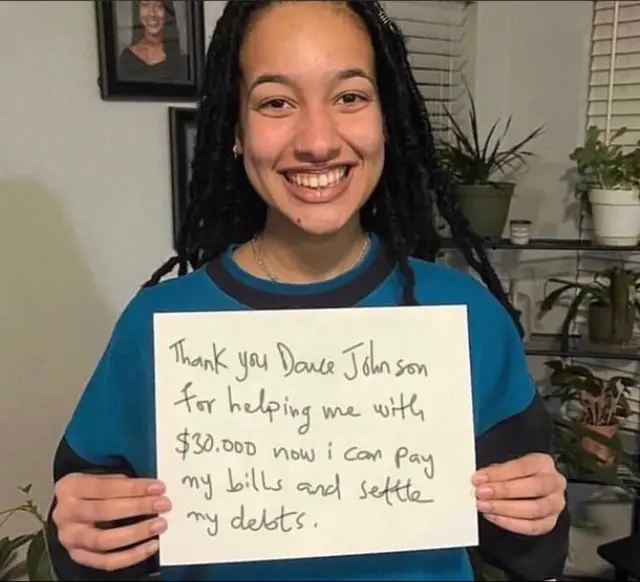 Thank you Dave Johnson
for helping me with
$30.000 now i can pay
my bills and settle
my debts.